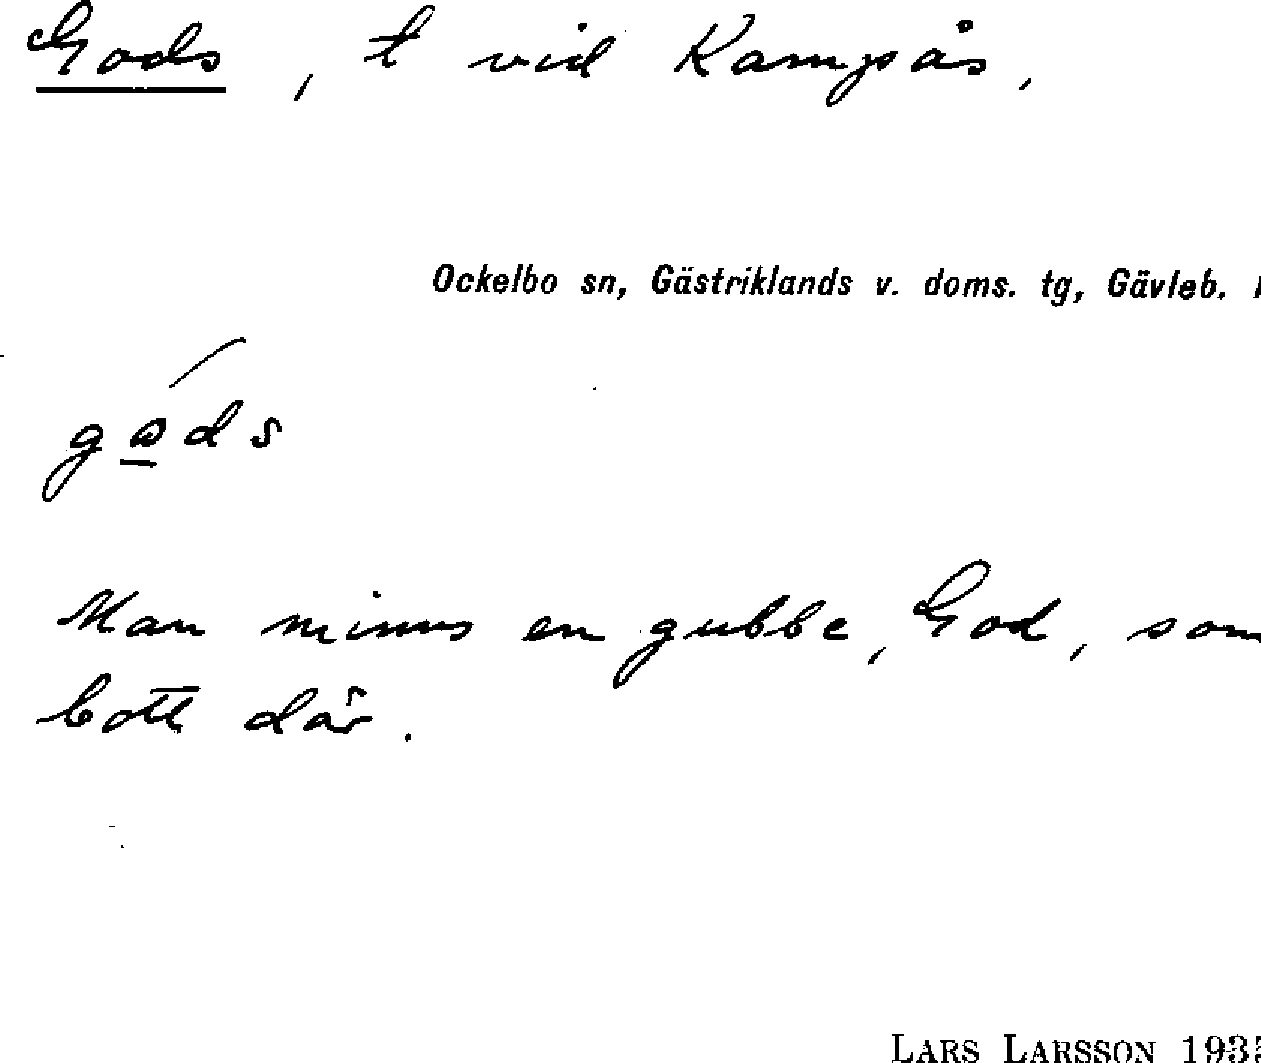 Gods, t vid Kampås,
Ockelbo sn, Gästriklands v. doms. tg, Gävleb.
Man minns en gubbe, God, som
bott där.
LARS LARSSON